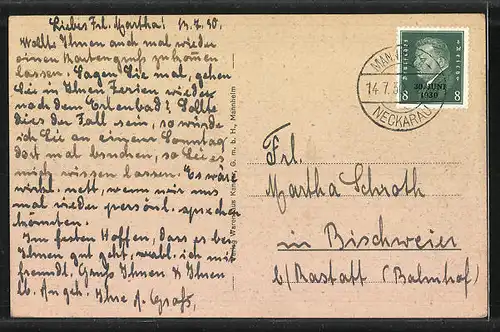 Liebes Frl. Martha! 13.7.30.
Wollte Ihnen auch mal wieder
einen Kartengruß zukommen
lassen. Sagen Sie mal, gehen
Sie in Ihren Ferien wieder
nach dem Erlenbad? Sollte
dies der Fall sein, so würde
ich Sie an einem Sonntag
dort mal besuchen, so Sie es
mich wissen lassen. Es wäre
wirkl. nett, wenn wir uns
mal wieder persönl. sprechen
könnten.
Im festen Hoffen, dass es bei
Ihnen gut geht, verbl. ich mit
freundl. Gruß Ihnen & Ihren
lb. Angeh. Ihre A. Groß,
Verlag Warenhaus Kander, G. m. b. H., Mannheim
MAN
14.7.3
NECKARAU
30. JUNI
1930
8 8
Frl.
Martha Schroth
in Bischweier
b/Rastatt (Bahnhof)